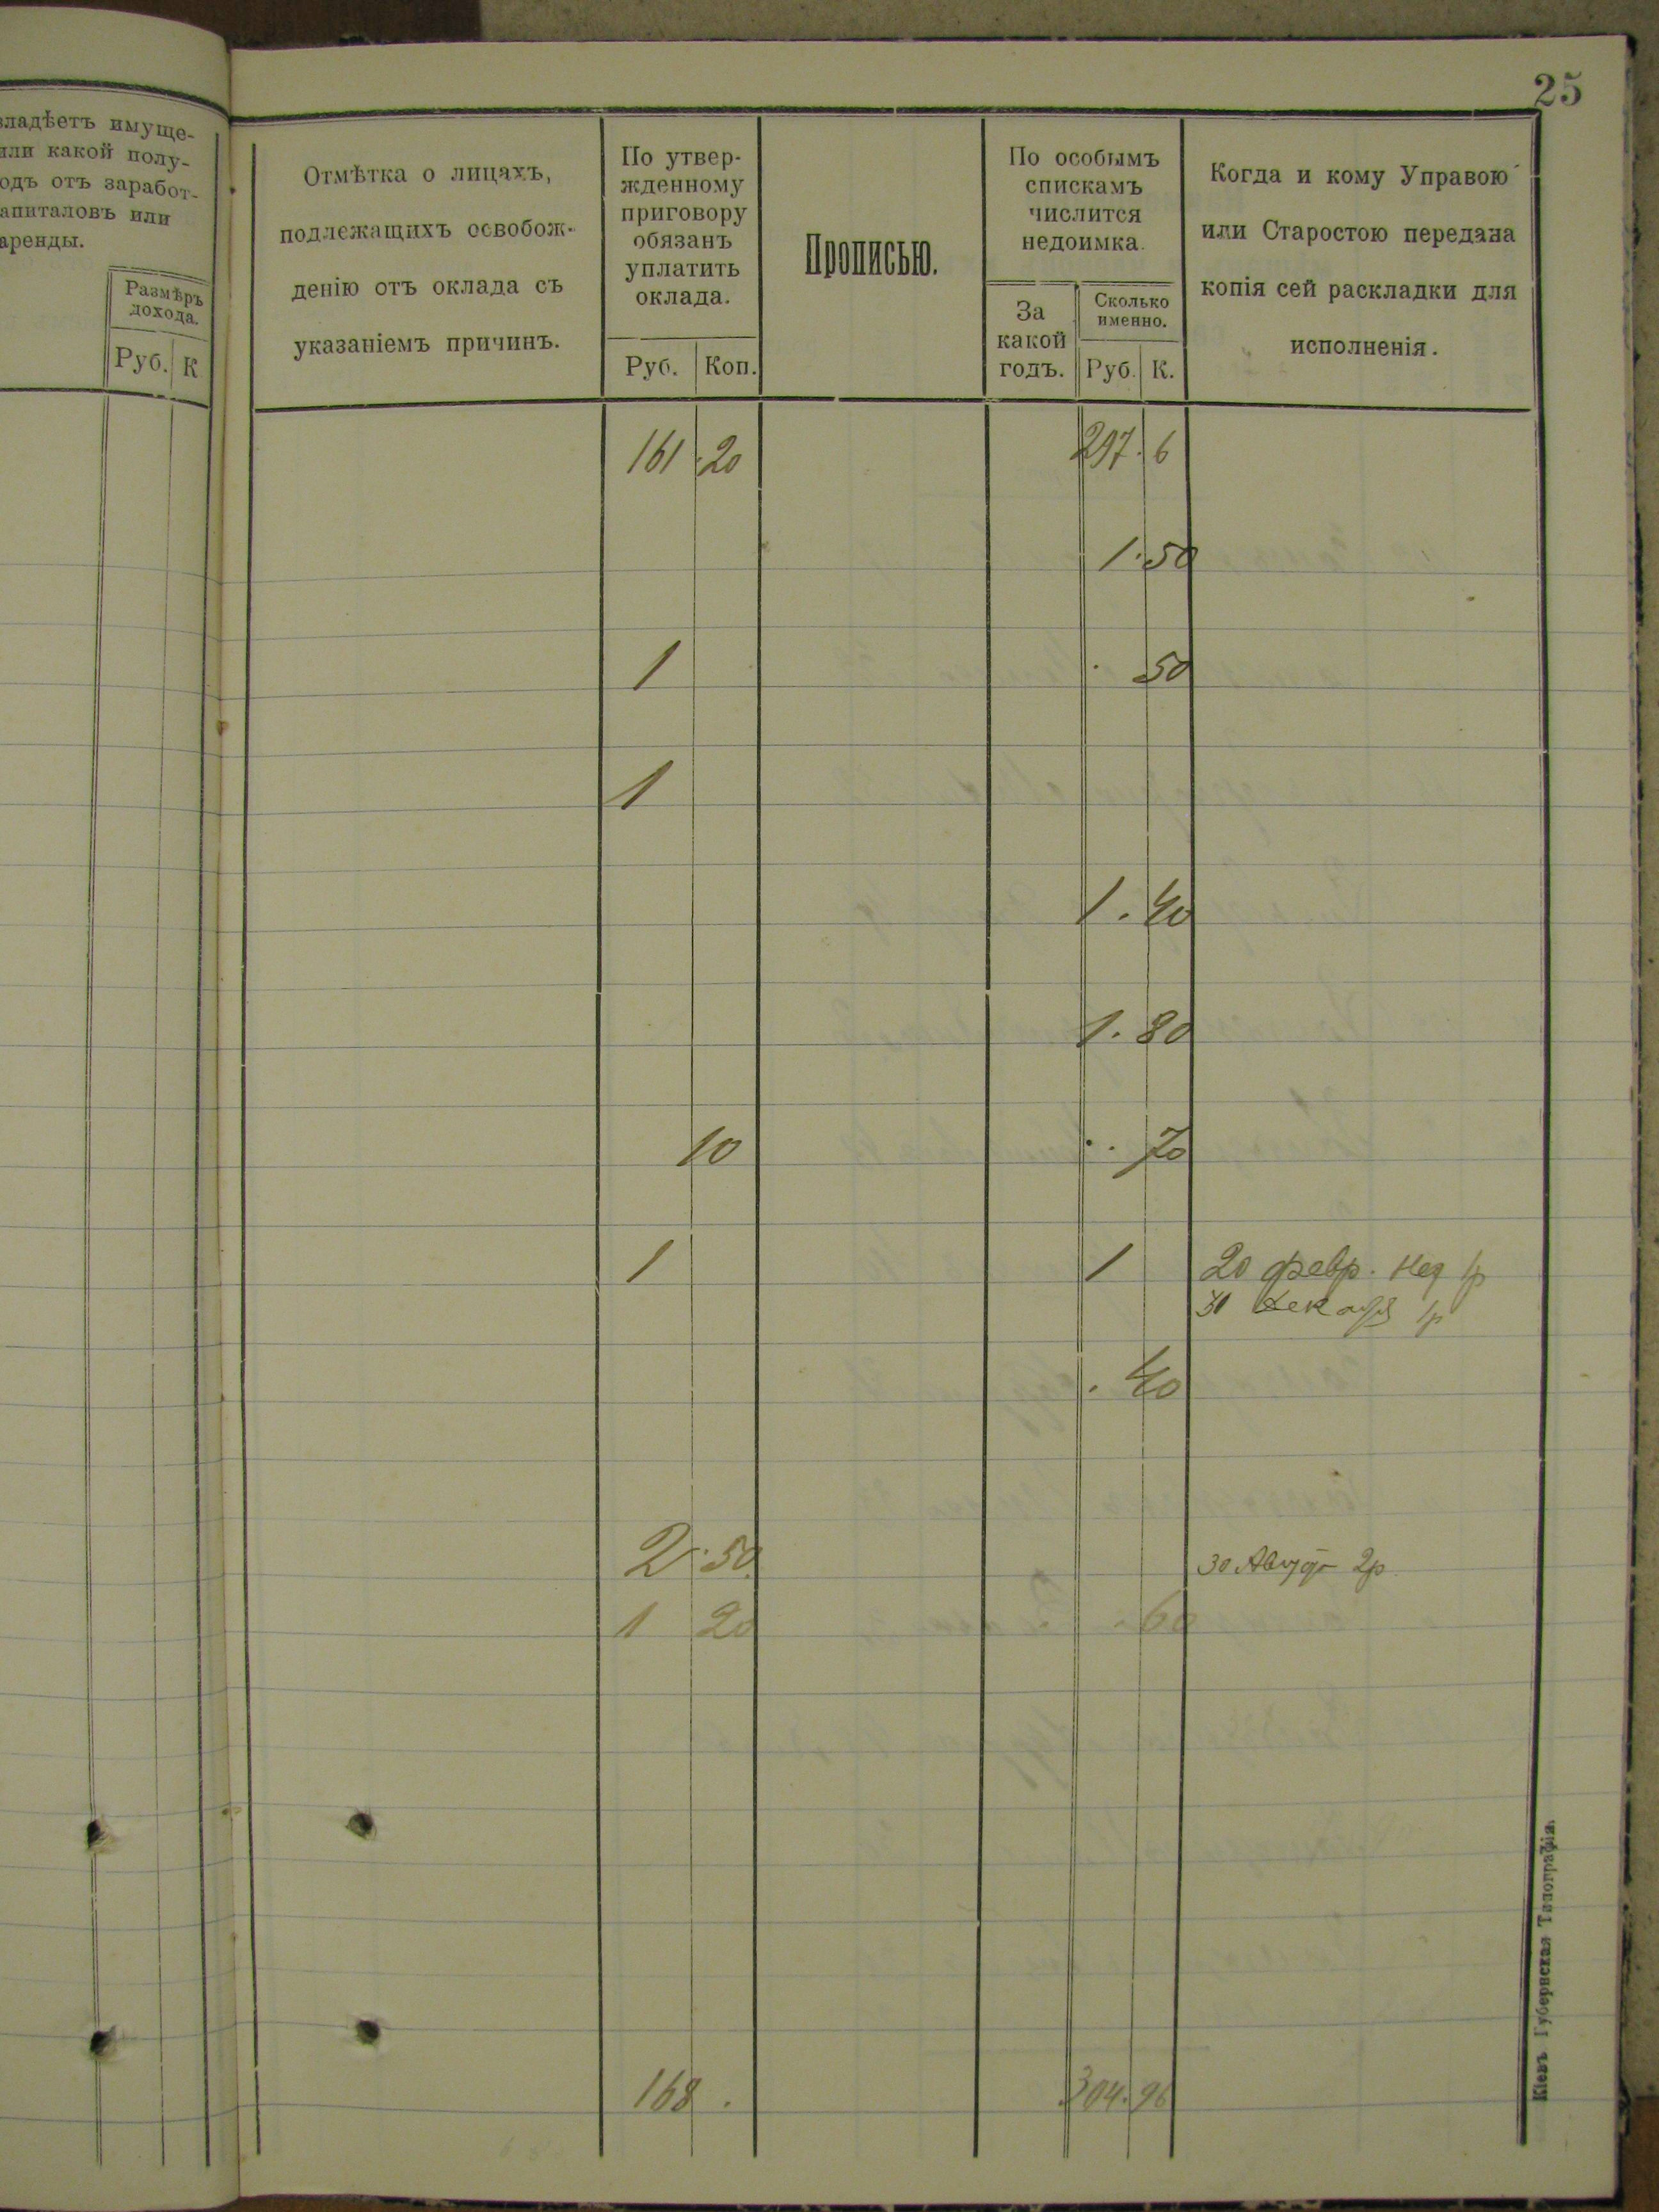 25
владѣетъ имуще-
или какой полу-
одъ отъ заработ-
апиталовъ или
аренды.
Размѣръ
дохода.
Руб. К
Отмѣтка о лицахъ,
подлежащихъ освобож-
денію отъ оклада съ
указаніемъ причинъ.
По утвер-
жденному
приговору
обязанъ
уплатить
оклада.
Руб. Коп.
Прописью.
По особымъ
спискамъ
числится
недоимка.
За
какой
годъ.
Сколько
именно.
Руб. К.
Когда и кому Управою
или Старостою передана
копія сей раскладки для
исполненія.
161 20 297. 6
1. 50
1 50
1
1. 40
1. 80
10 70
1 1 20 февр. нед 1р
31 декабря 1р
40
2. 50 30 Август 2р
1 20 60
168 . 304. 96
Кіевъ Губернская Типографія.